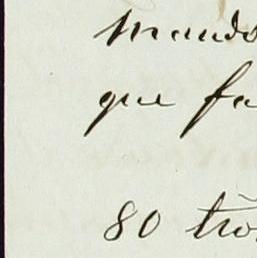 mando
que fa
80 tro